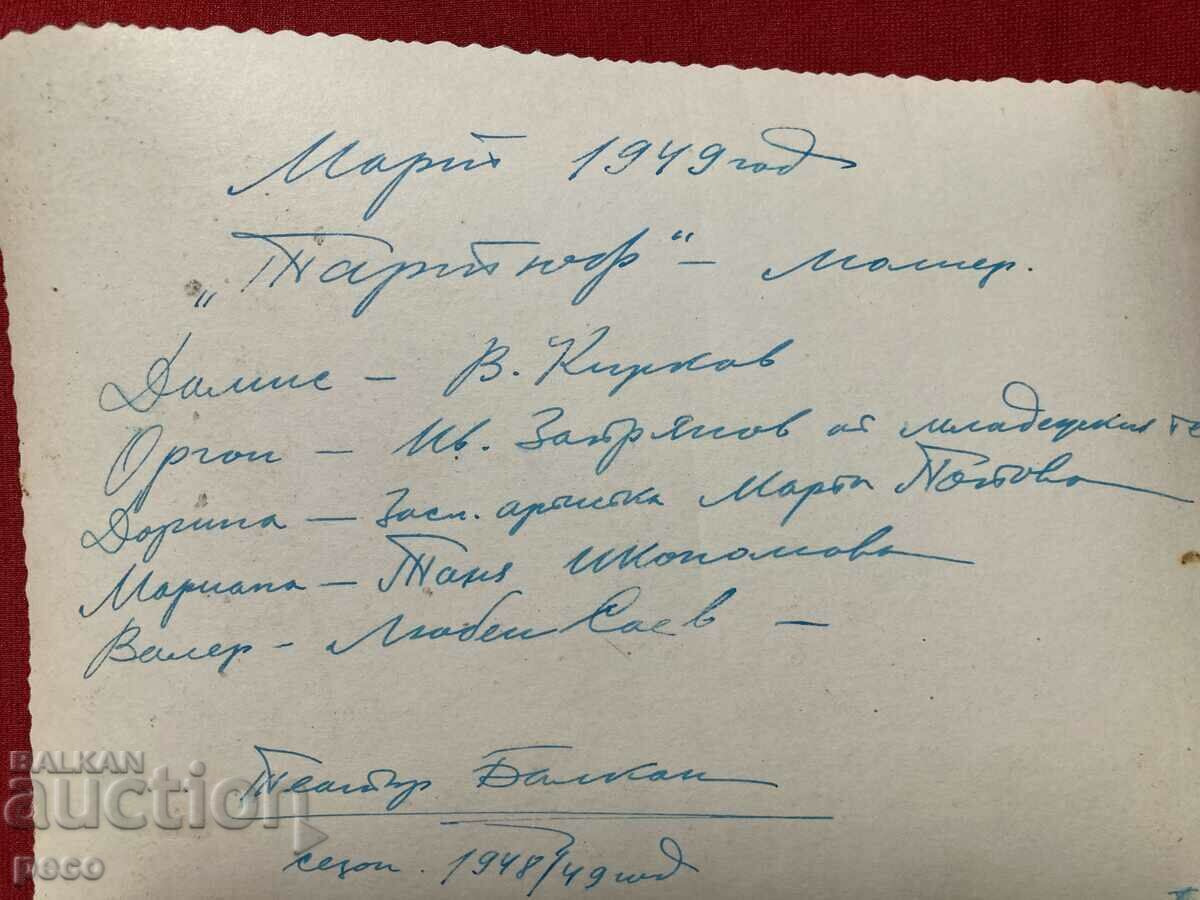 Март 1949 год
„Тартюф“ – Молиер.
Дамис – В. Кирков
Оргон – Ив. Запрянов от младежкия те
Дорина – Засл. артистка Марта Попова
Мариана – Таня Икономова
Валер – Любен Саев –
Театър Балкан
сезон. 1948/49 год
BALKAN
auction
peco